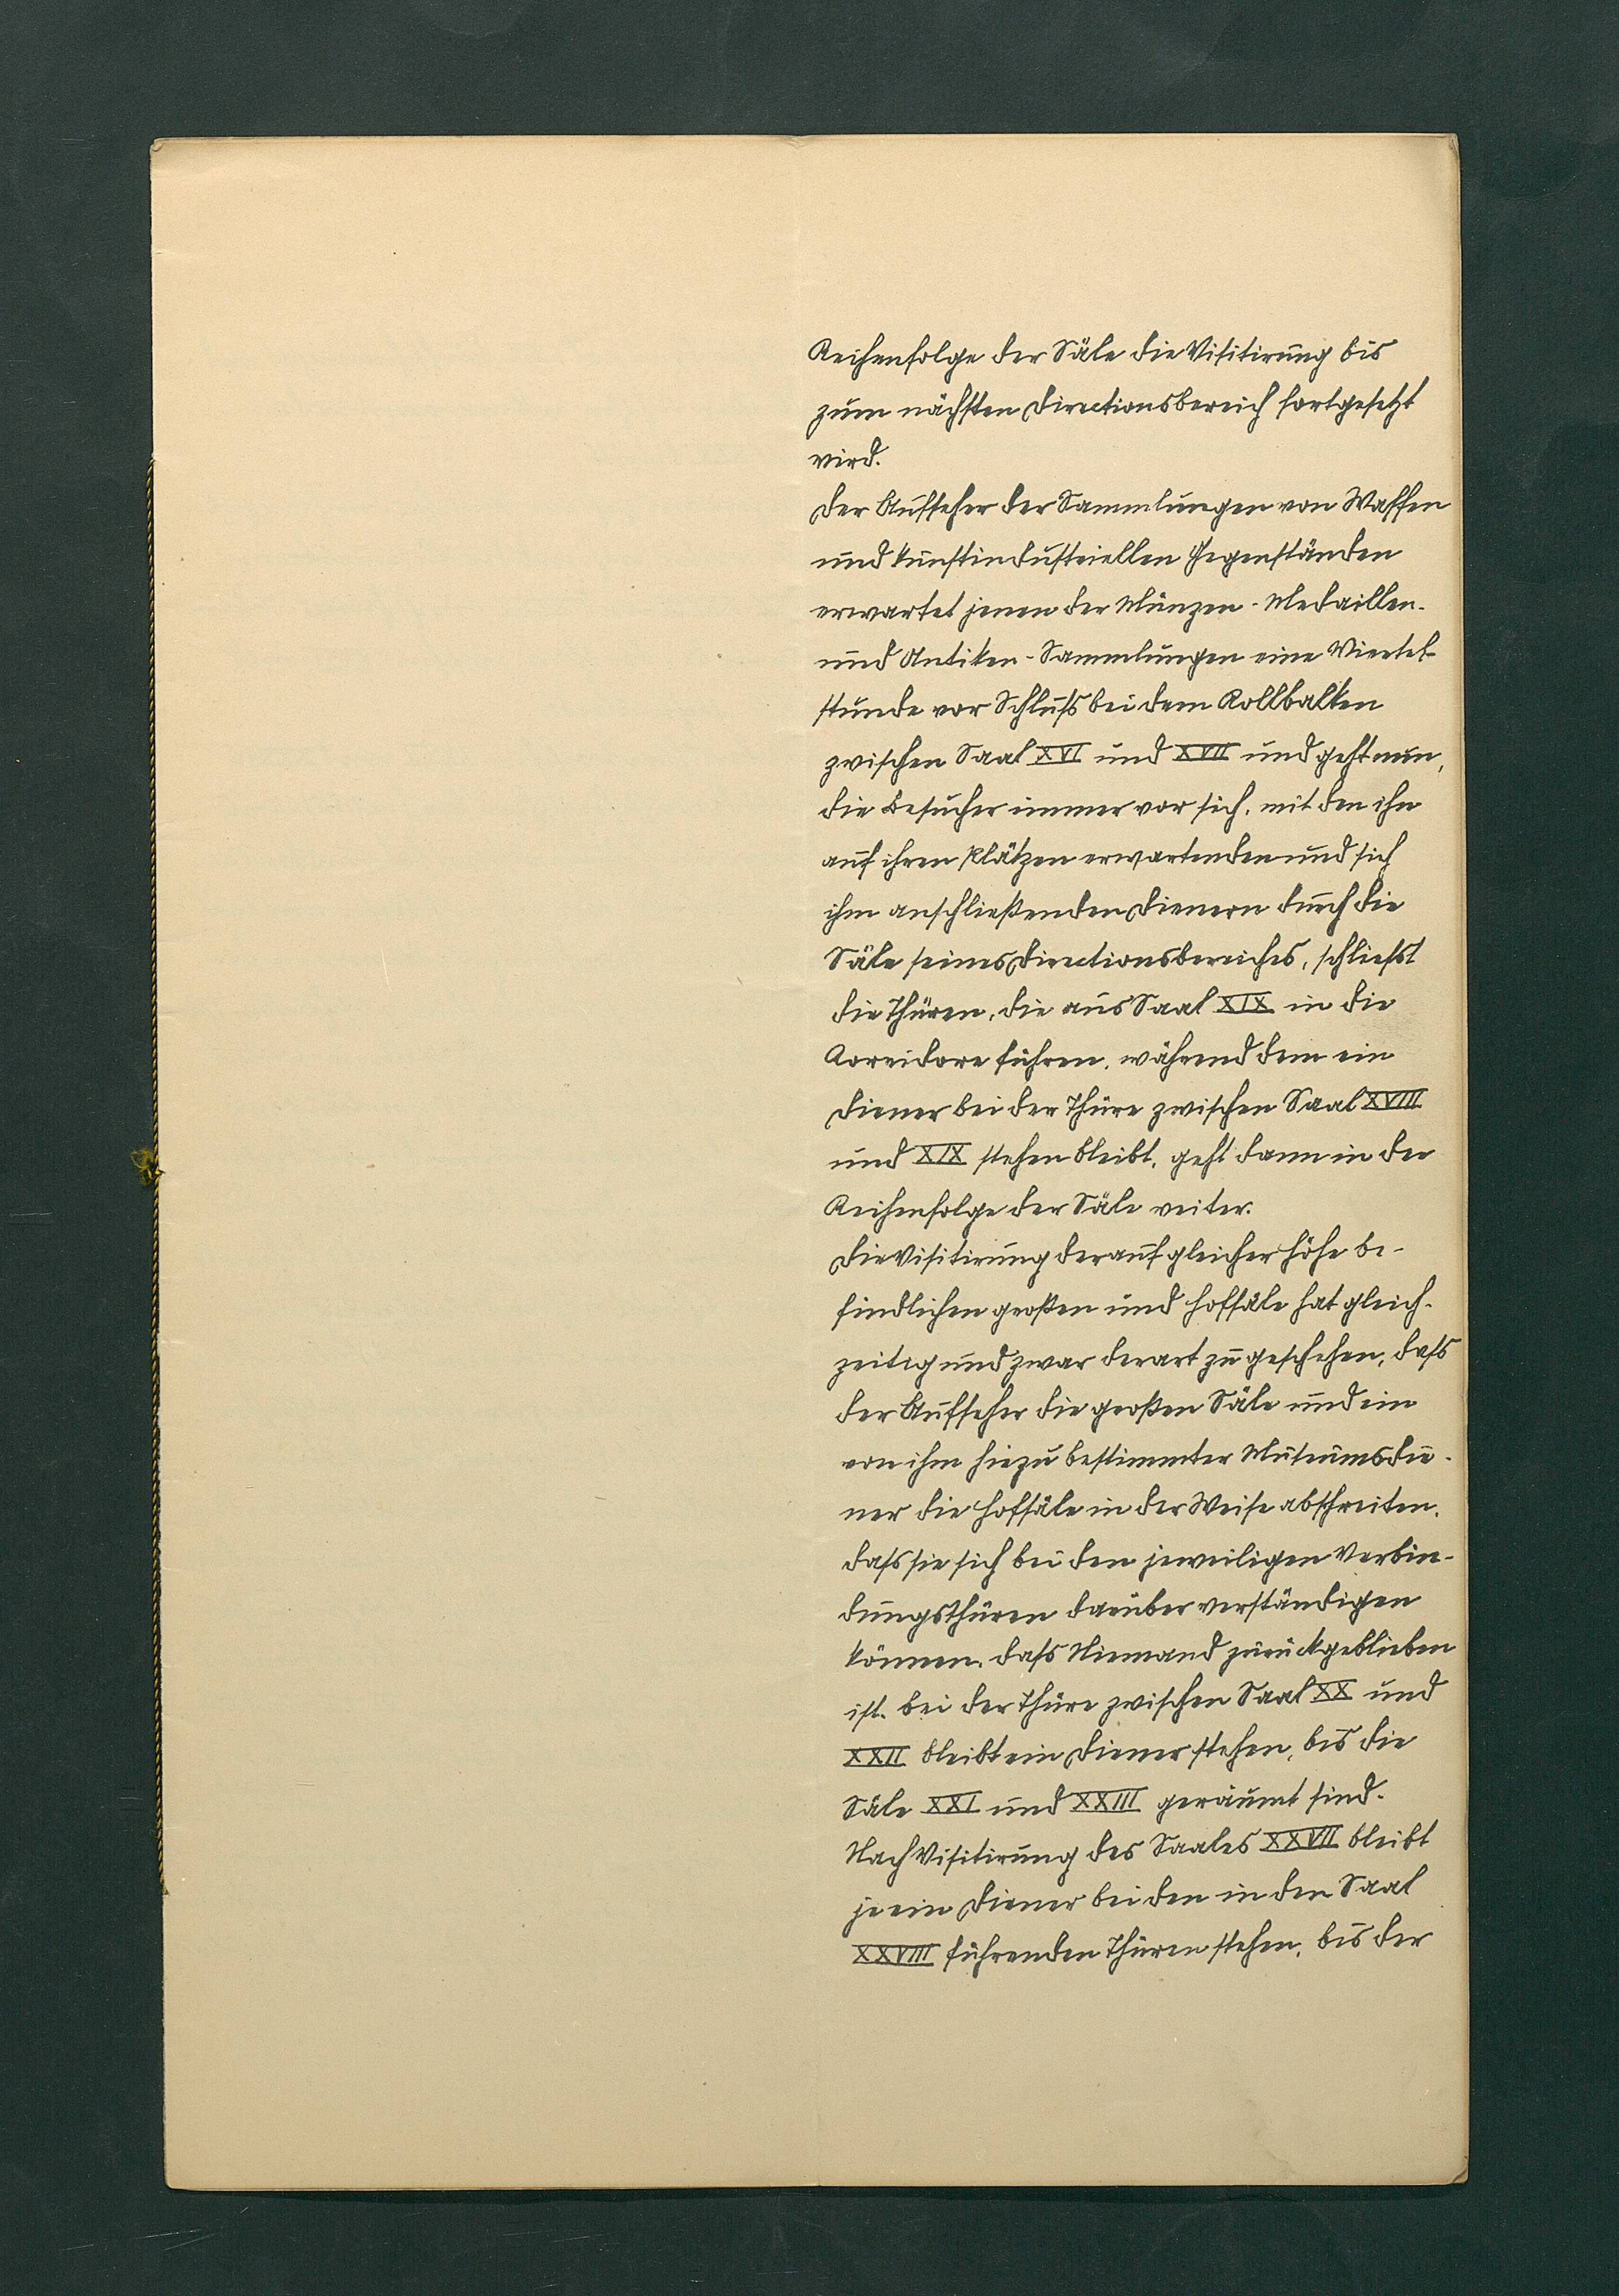 Reihenfolge der Säle die Visitirung bis
zum nächsten Directionsbereich fortgesetzt
wird.
Der Aufseher der Sammlungen von Waffen
und kunstindustriellen Gegenständen
erwartet jenen der Münzen- Medaillen-
und Antiken-Sammlungen eine Viertel-
stunde vor Schluß bei dem Rollbalken
zwischen Saal XVI und XVII und geht nun,
die Besucher immer vor sich, mit den ihn
auf ihren Plätzen erwartenden und sich
ihm anschließenden Dienern durch die
Säle seines Directionsbereiches, schliesst
die Thüren, die aus Saal XIX in die
Corridore führen, während dem ein
Diener bei der Thüre zwischen Saal XVIII
und XIX stehen bleibt, geht dann in der
Reihenfolge der Säle weiter.
Die Visitirung der auf gleicher Höhe be-
findlichen großen und Hofsäle hat gleich-
zeitig und zwar derart zu geschehen, dass
der Aufseher die großen Säle und ein
von ihm hiezu bestimmter Museumsdie-
ner die Hofsäle in der Weise abschreiten,
dass sie sich bei den jeweiligen Verbin-
dungsthüren darüber verständigen
können, dass Niemand zurückgeblieben
ist. Bei der Thüre zwischen Saal XX und
XXII bleibt ein Diener stehen, bis die
Säle XXI und XXIII geräumt sind.
Nach Visitirung des Saales XXVII bleibt
je ein Diener bei den in den Saal
XXVIII führenden Thüren stehen, bis der